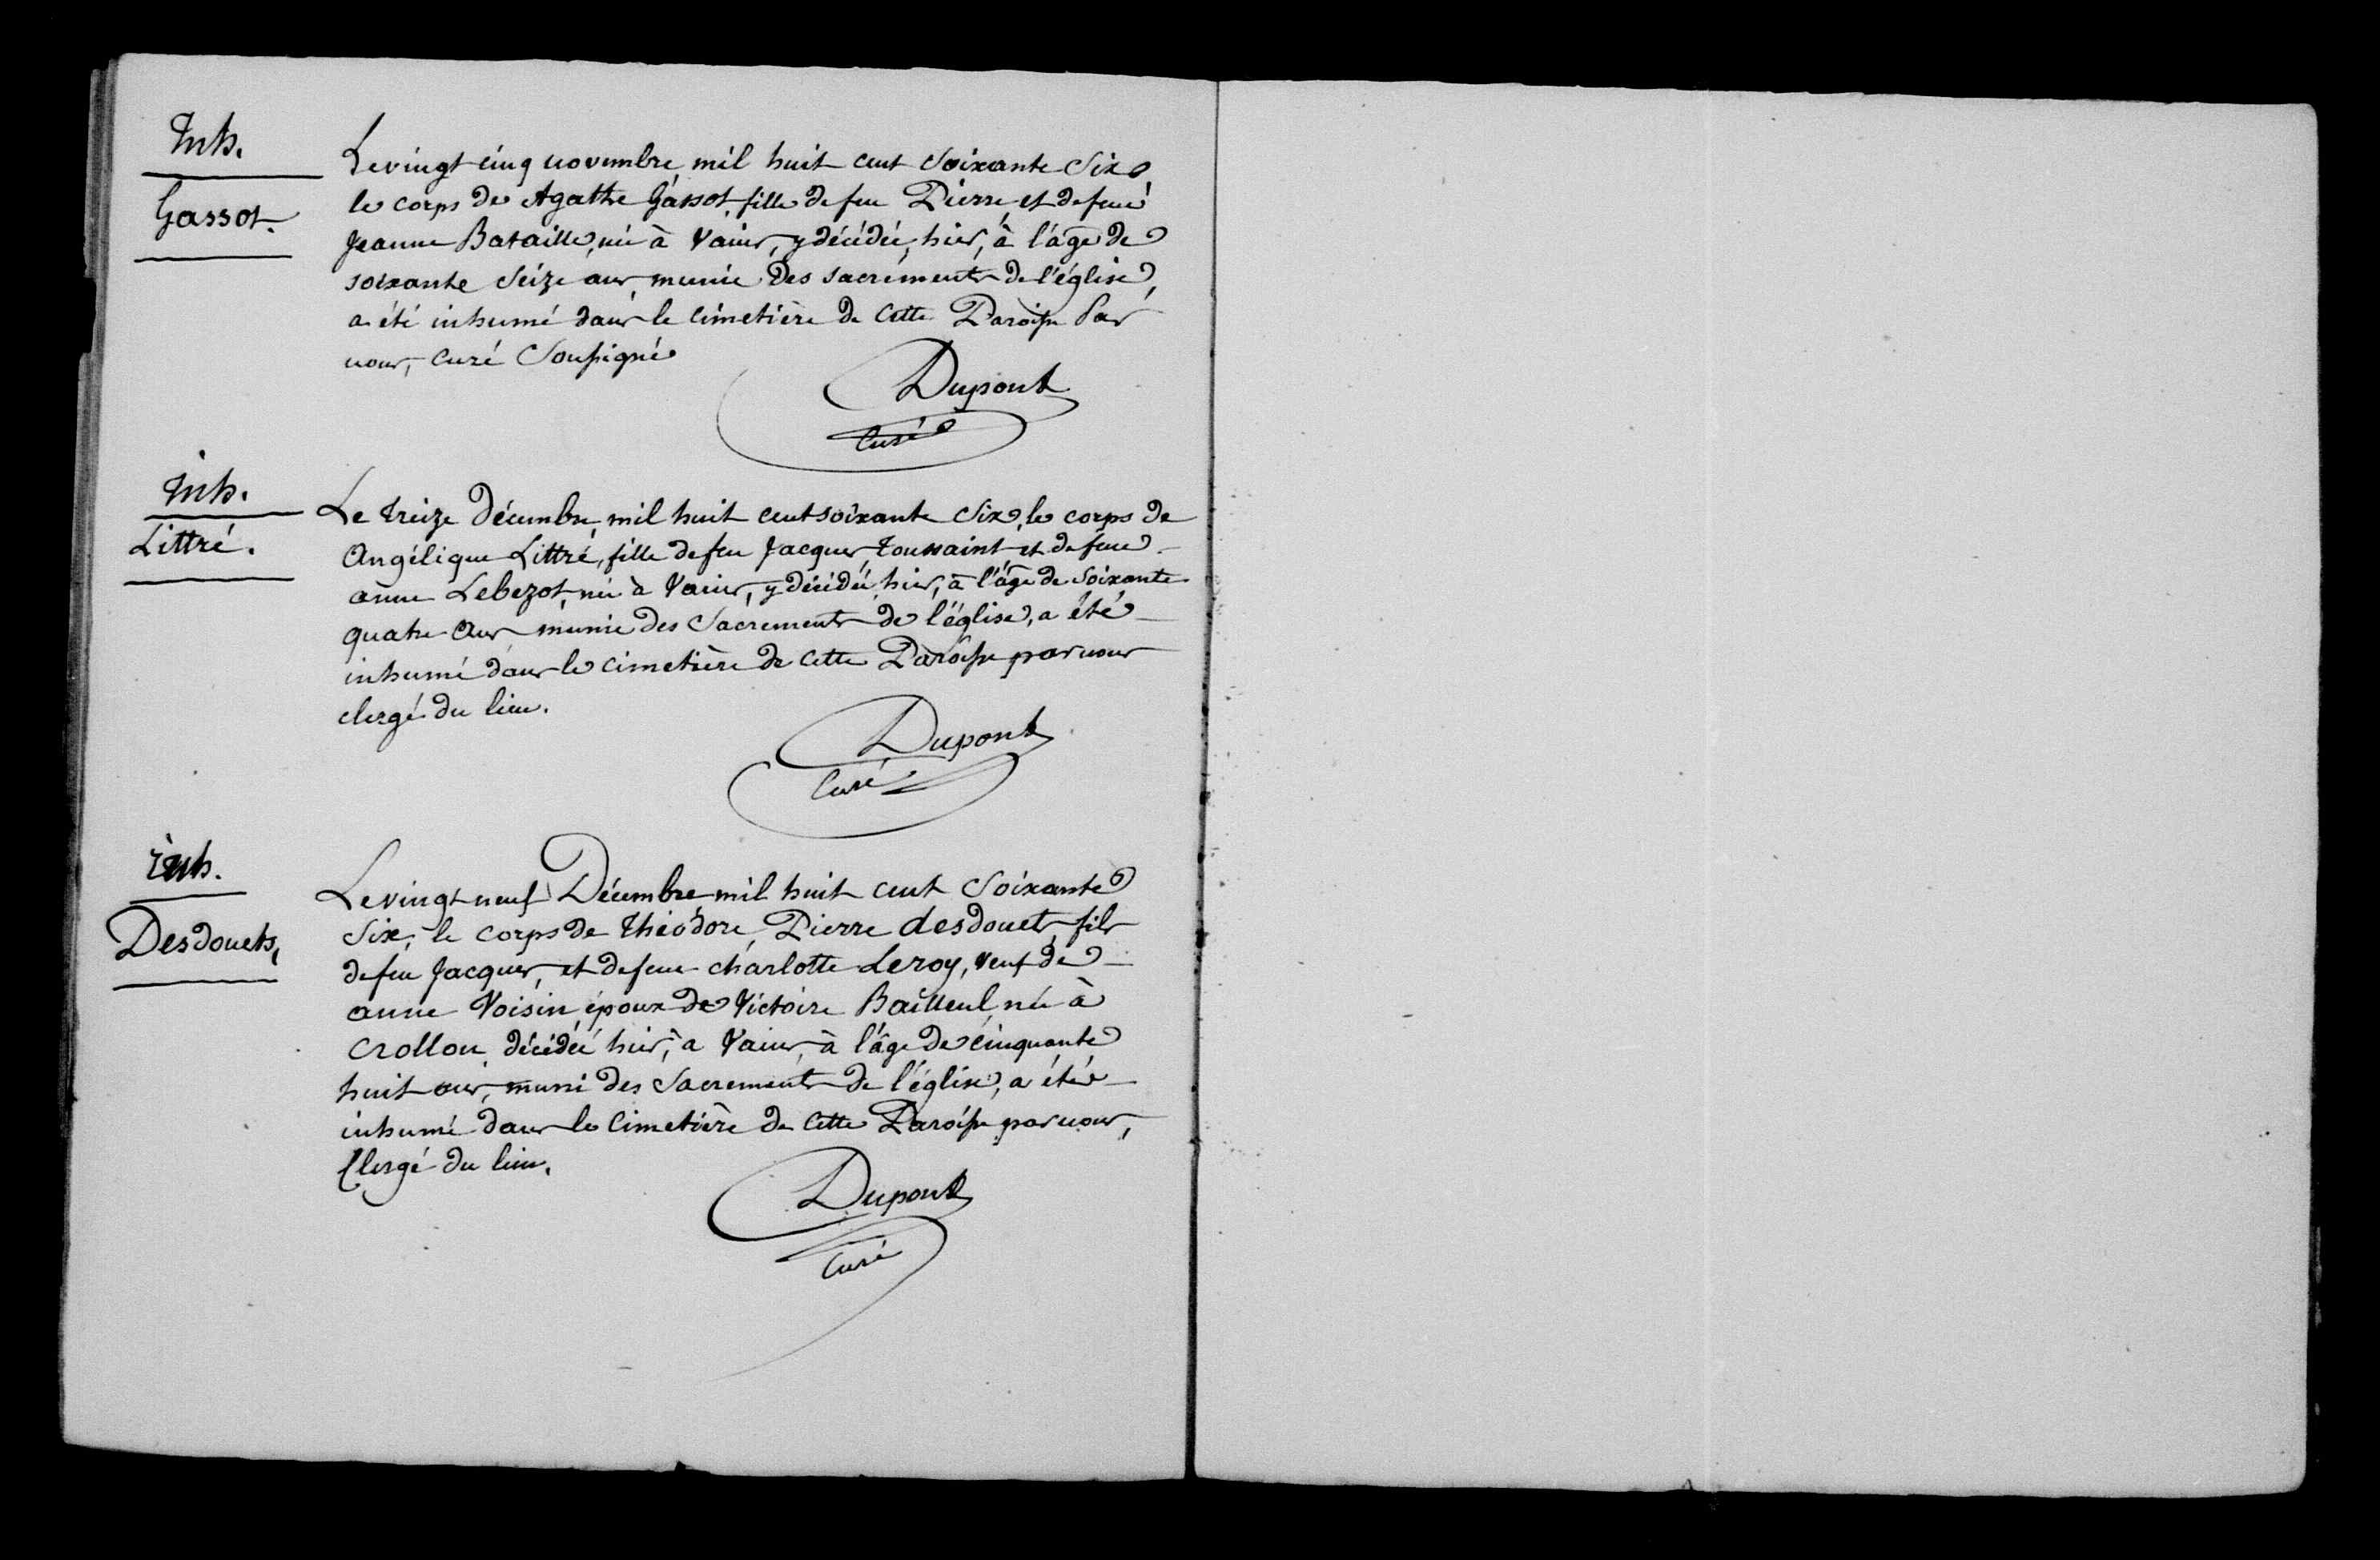 Inh.
Gassot.
Le vingt cinq novembre, mil huit cent soixante six,
le corps de Agathe Gassot, fille de feu Pierre, et de feue
Jeanne Bataille, née à Vains, y décédée, hier, à l'âge de
soixante seize ans, munie des sacrements de l'église,
a été inhumé dans le cimetière de cette Paroisse Par
nous, curé soussigné
Dupont
Curé
Inh.
Littré.
Le treize Décembre, mil huit cent soixante six, le corps de
Angélique Littré, fille de feu Jacques, toussaint et de feue
anne Lebezot, née à Vains, y décédée, hier, à l'âge de soixante
quatre ans munie des Sacrements de l'église, a été
inhumé dans le cimetière de cette Paroisse par nous
clergé du lieu.
Dupont
Curé
inh.
Desdouets,
Le vingt neuf Décembre mil huit cent soixante
six, le corps de Théodore, Pierre desdouets, fils
de feu Jacques, et de feue charlotte Leroy, veuf de
anne Voisin, époux de Victoire Bailleul, né à
Crollon, décédé hier, a Vains, à l'âge de cinquante
huit ans, muni des Sacrements de l'église, a été
inhumé dans le cimetière de cette Paroisse par nous,
Clergé du lieu.
Dupont
Curé